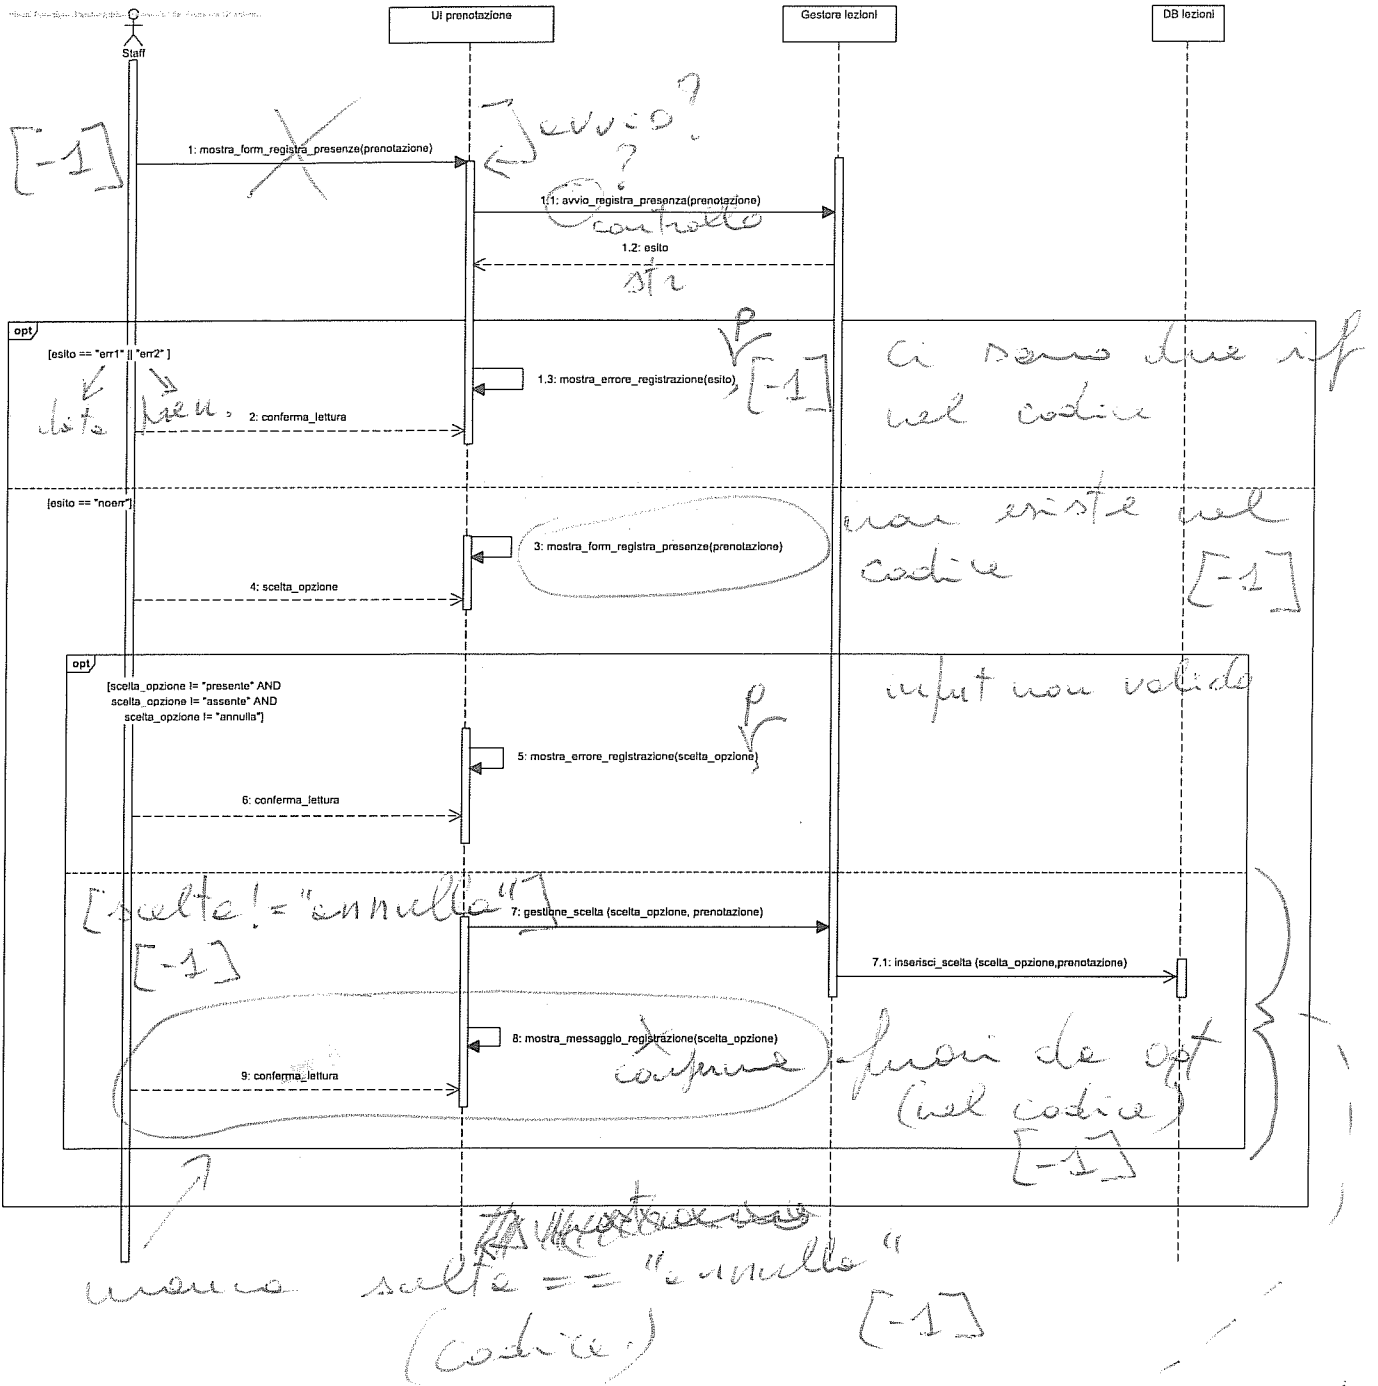 Staff
UI prenotazione
Gestore lezioni
DB lezioni
[-1]
1: mostra_form_registra_presenze(prenotazione)
avvio?
?
1.1: avvio_registra_presenza(prenotazione)
controllo
1.2: esito
str
opt
[esito == "err1" || "err2" ]
data pren.
1.3: mostra_errore_registrazione(esito)
P
[-1]
ci sono due if
nel codice
2: conferma_lettura
[esito == "noerr"]
3: mostra_form_registra_presenze(prenotazione)
non esiste nel
codice
[-1]
4: scelta_opzione
opt
[scelta_opzione != "presente" AND
scelta_opzione != "assente" AND
scelta_opzione != "annulla"]
input non valido
P
5: mostra_errore_registrazione(scelta_opzione)
6: conferma_lettura
[scelta != "annulla"]
[-1]
7: gestione_scelta (scelta_opzione, prenotazione)
7.1: inserisci_scelta (scelta_opzione,prenotazione)
8: mostra_messaggio_registrazione(scelta_opzione)
conferma
fuori da opt
(nel codice)
[-1]
9: conferma_lettura
manca scelta == "annulla"
(codice)
[-1]